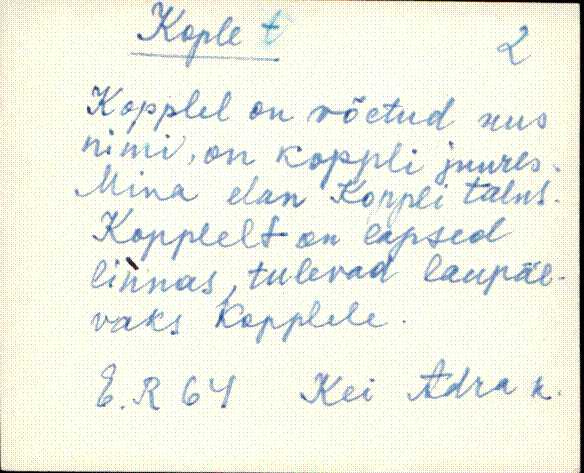 Koplet
2
Kopplel on võetud uus
nimi, on koppli juures.
Mina elan Koppli talus.
Kopplelt on lapsed
linnas, tulevad laupäe-
vaks Kopplele.
E. R 64 Kei Adra k.